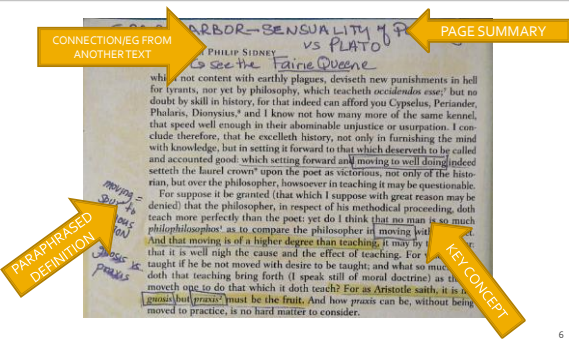 PAGE SUMMARY
CONNECTION/EG FROM
ANOTHER TEXT
ARBOR—SENSUALITY of
PHILIP SIDNEY
VS PLATO
see the Fairie Queene
which not content with earthly plagues, deviseth new punishments in hell
for tyrants, nor yet by philosophy, which teacheth occidendos esse;⁷ but no
doubt by skill in history, for that indeed can afford you Cypselus, Periander,
Phalaris, Dionysius,⁸ and I know not how many more of the same kennel,
that speed well enough in their abominable unjustice or usurpation. I con-
clude therefore, that he excelleth history, not only in furnishing the mind
with knowledge, but in setting it forward to that which deserveth to be called
and accounted good: which setting forward and moving to well doing indeed
setteth the laurel crown⁹ upon the poet as victorious, not only of the histo-
rian, but over the philosopher, howsoever in teaching it may be questionable.
For suppose it be granted (that which I suppose with great reason may be
denied) that the philosopher, in respect of his methodical proceeding, doth
teach more perfectly than the poet: yet do I think that no man is so much
philophilosophos¹ as to compare the philosopher in moving with
And that moving is of a higher degree than teaching, it may by
that it is well nigh the cause and the effect of teaching. For
taught if he be not moved with desire to be taught; and what so much
doth that teaching bring forth (I speak still of moral doctrine) as th
moveth one to do that which it doth teach? For as Aristotle saith, it is n
gnosis but praxis² must be the fruit. And how praxis can, without being
moved to practice, is no hard matter to consider.
moving =
to
gnosis vs.
praxis
PARAPHRASED
DEFINITION
KEY CONCEPT
6